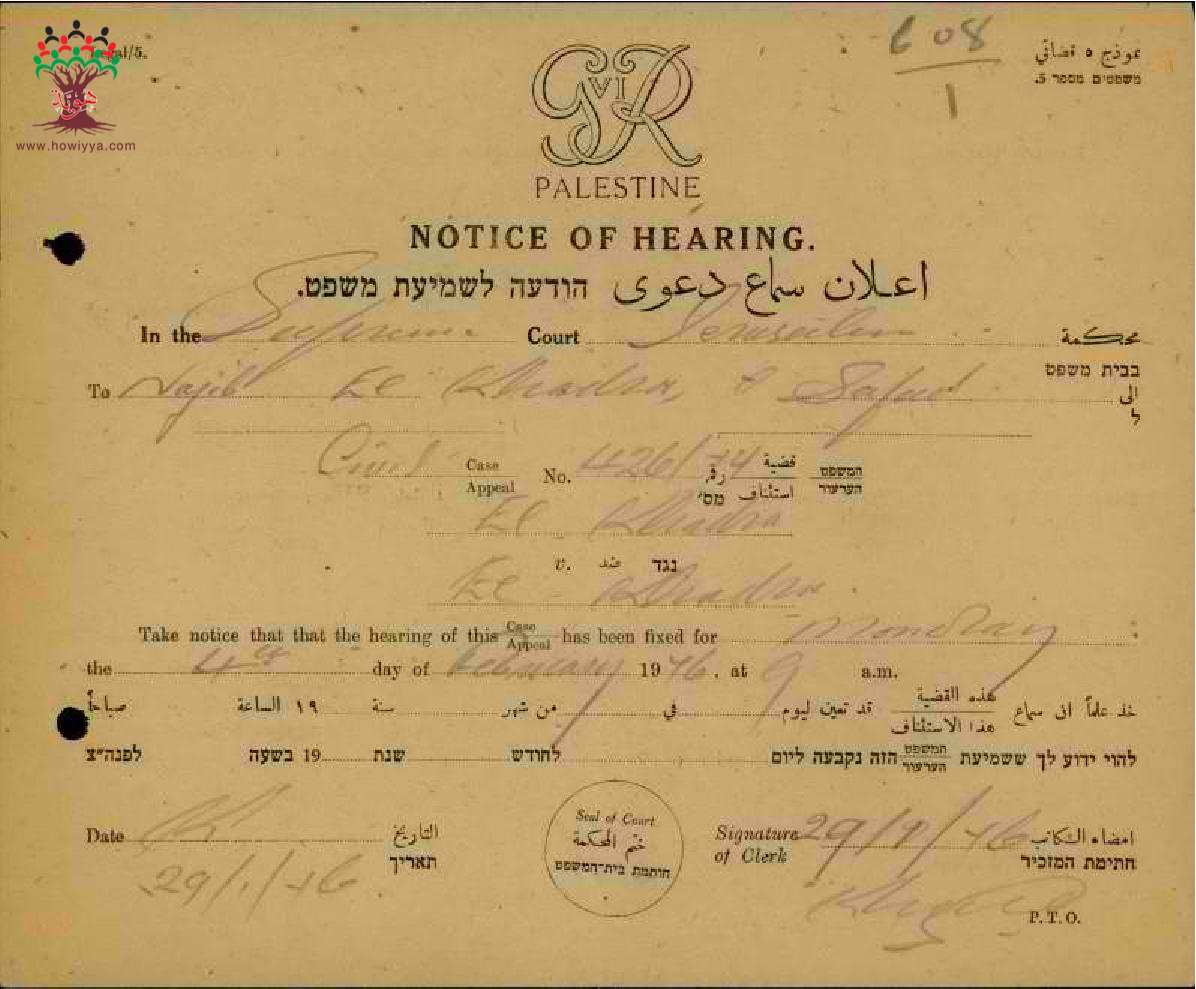 Legal/5.
608
1
نموذج ٥ قضائي
משפטים מספר 5.
هوية
www.howiyya.com
G VI R
PALESTINE
NOTICE OF HEARING.
اعلان سماع دعوى הודעה לשמיעת משפט.
In the Supreme Court Jerusalem محكمة
בבית משפט
To Najib El Safad الى
ל
Civil Case Appeal No. 426/44 رقم מס' قضية استئناف המשפט הערעור
El
v. ضد נגד
El
Take notice that that the hearing of this Case Appeal has been fixed for Monday
the 4th day of February 1946. at 9 a.m.
خذ علماً ان سماع هذه القضية هذا الاستئناف قد تعين ليوم في من شهر سنة ١٩ الساعة صباحاً
להוי ידוע לך ששמיעת המשפט הערעור הזה נקבעה ליום לחודש שנת 19 בשעה לפנה"צ
Date التاريخ תאריך
29/1/46.
Seal of Court
ختم المحكمة
חותמת בית-המשפט
Signature of Clerk 29/1/46 امضاء الكاتب
חתימת המזכיר
P.T.O.